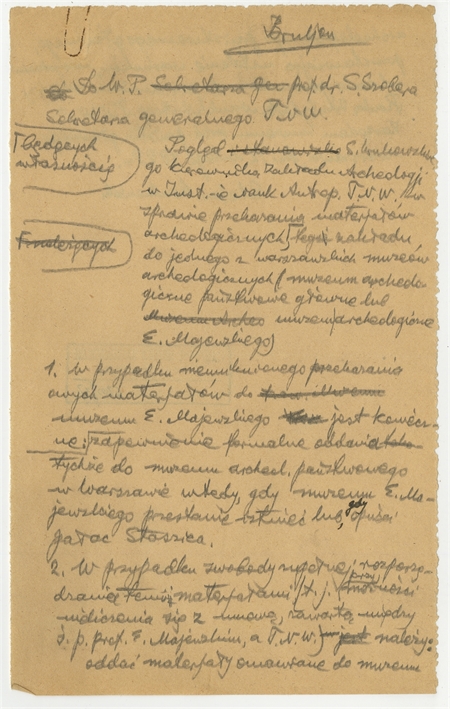 Bruljon
Do W. P. Sekretarza gen prof. dr. S. Szobera
Sekretarza generalnego T.N.W.
będących
własnością
Pogląd stanowisko S. Krukowskie-
go kierownika Zakładu Archeologji
w Inst.-ie Nauk Antrop. T.N.W. w
sprawie przekazania materjałów
archeologicznych tegoż zakładu
do jednego z warszawskich muzeów
archeologicznych (muzeum archeolo-
giczne państwowe główne lub
Muzeum Archeo muzeum archeologiczne
E. Majewskiego)
1. w przypadku nieuniknionego przekazania
owych materjałów do
muzeum E. Majewskiego jest koniecz-
ne: zapewnienie formalne oddania
tychże do muzeum archeol. państwowego
w Warszawie wtedy, gdy muzeum E. Ma-
jewskiego przestanie istnieć lub, gdy opuści
pałac Staszica.
2. W przypadku swobody zupełnej rozporzą-
dzania temiż materjałami (t. j. przy
nieliczenia się z umową, zawartą między
ś. p. prof. E. Majewskim, a T.N.W.) należy:
oddać materjały omawiane do muzeum